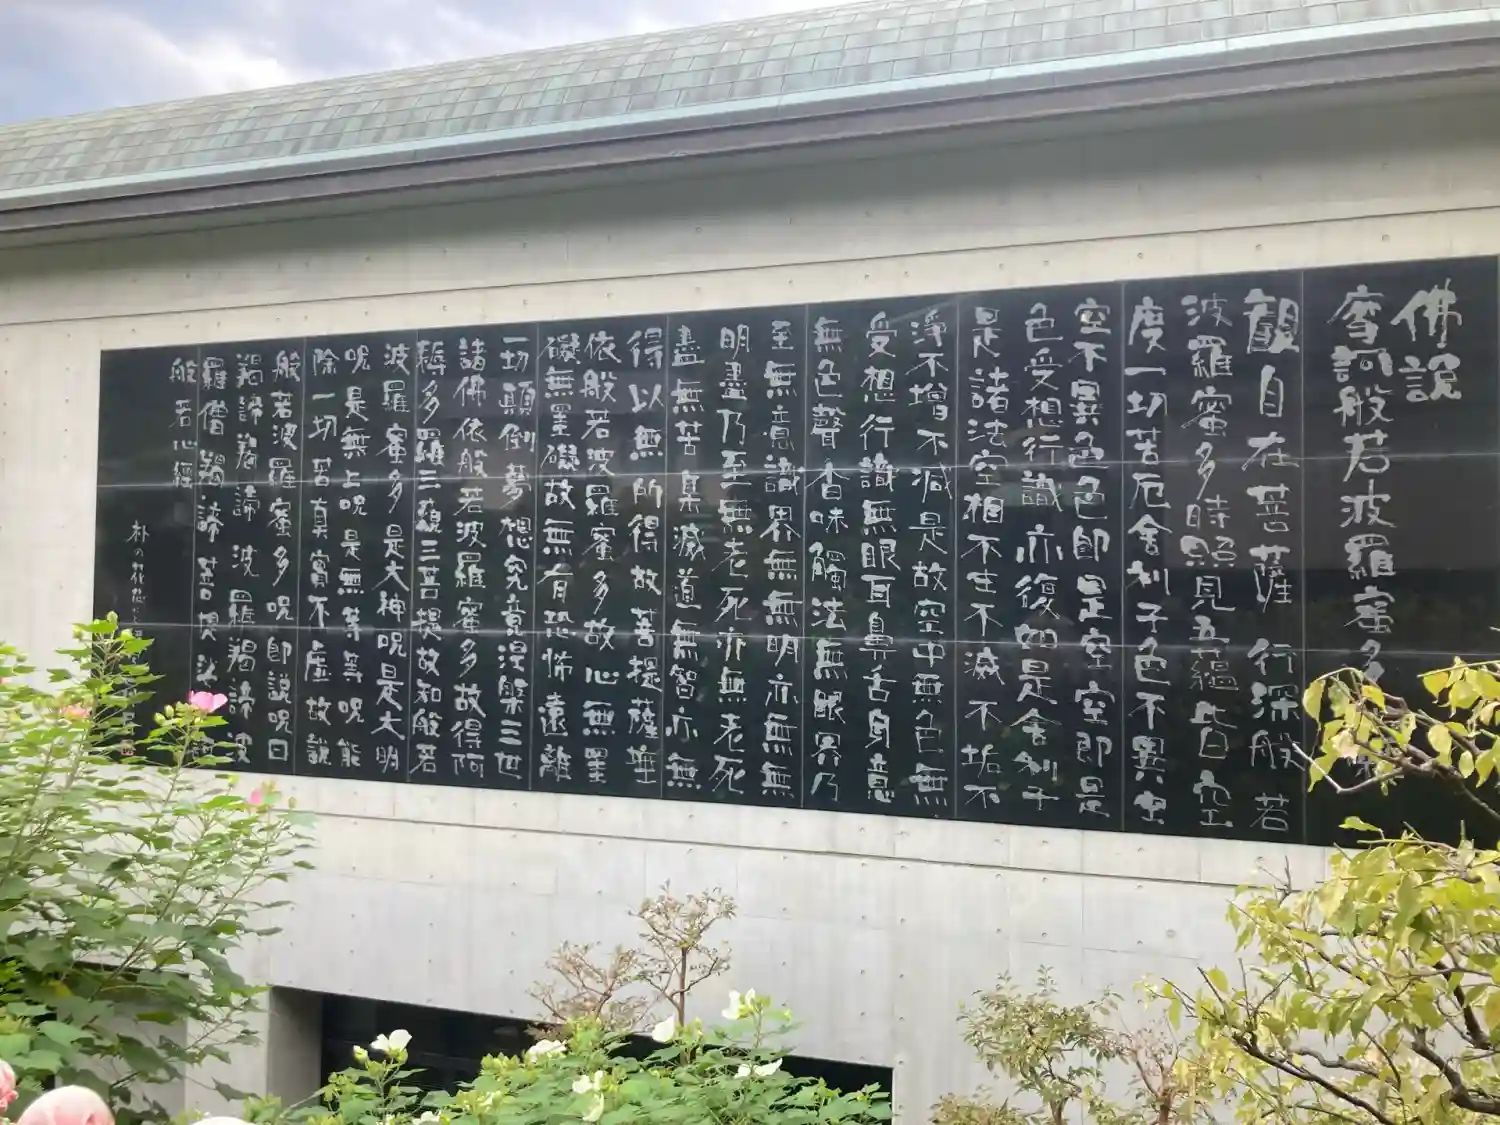 佛説
摩訶般若波羅蜜多
觀自在菩薩 行深般若
波羅蜜多時照見五蘊皆空
度一切苦厄舍利子色不異空
空不異色色即是空空即是
色受想行識亦復如是舍利子
是諸法空相不生不滅不垢不
淨不增不減是故空中無色無
受想行識無眼耳鼻舌身意
無色聲香味觸法無眼界乃
至無意識界無無明亦無無
明盡乃至無老死亦無老死
盡無苦集滅道無智亦無
得以無所得故菩提薩埵
依般若波羅蜜多故心無罣
礙無罣礙故無有恐怖遠離
一切顛倒夢想究竟涅槃三世
諸佛依般若波羅蜜多故得阿
耨多羅三藐三菩提故知般若
波羅蜜多是大神呪是大明
呪是無上呪是無等等呪能
除一切苦真實不虛故說
般若波羅蜜多呪即說呪曰
羯諦羯諦 波羅羯諦 波
羅僧羯諦 菩提娑
般若心經